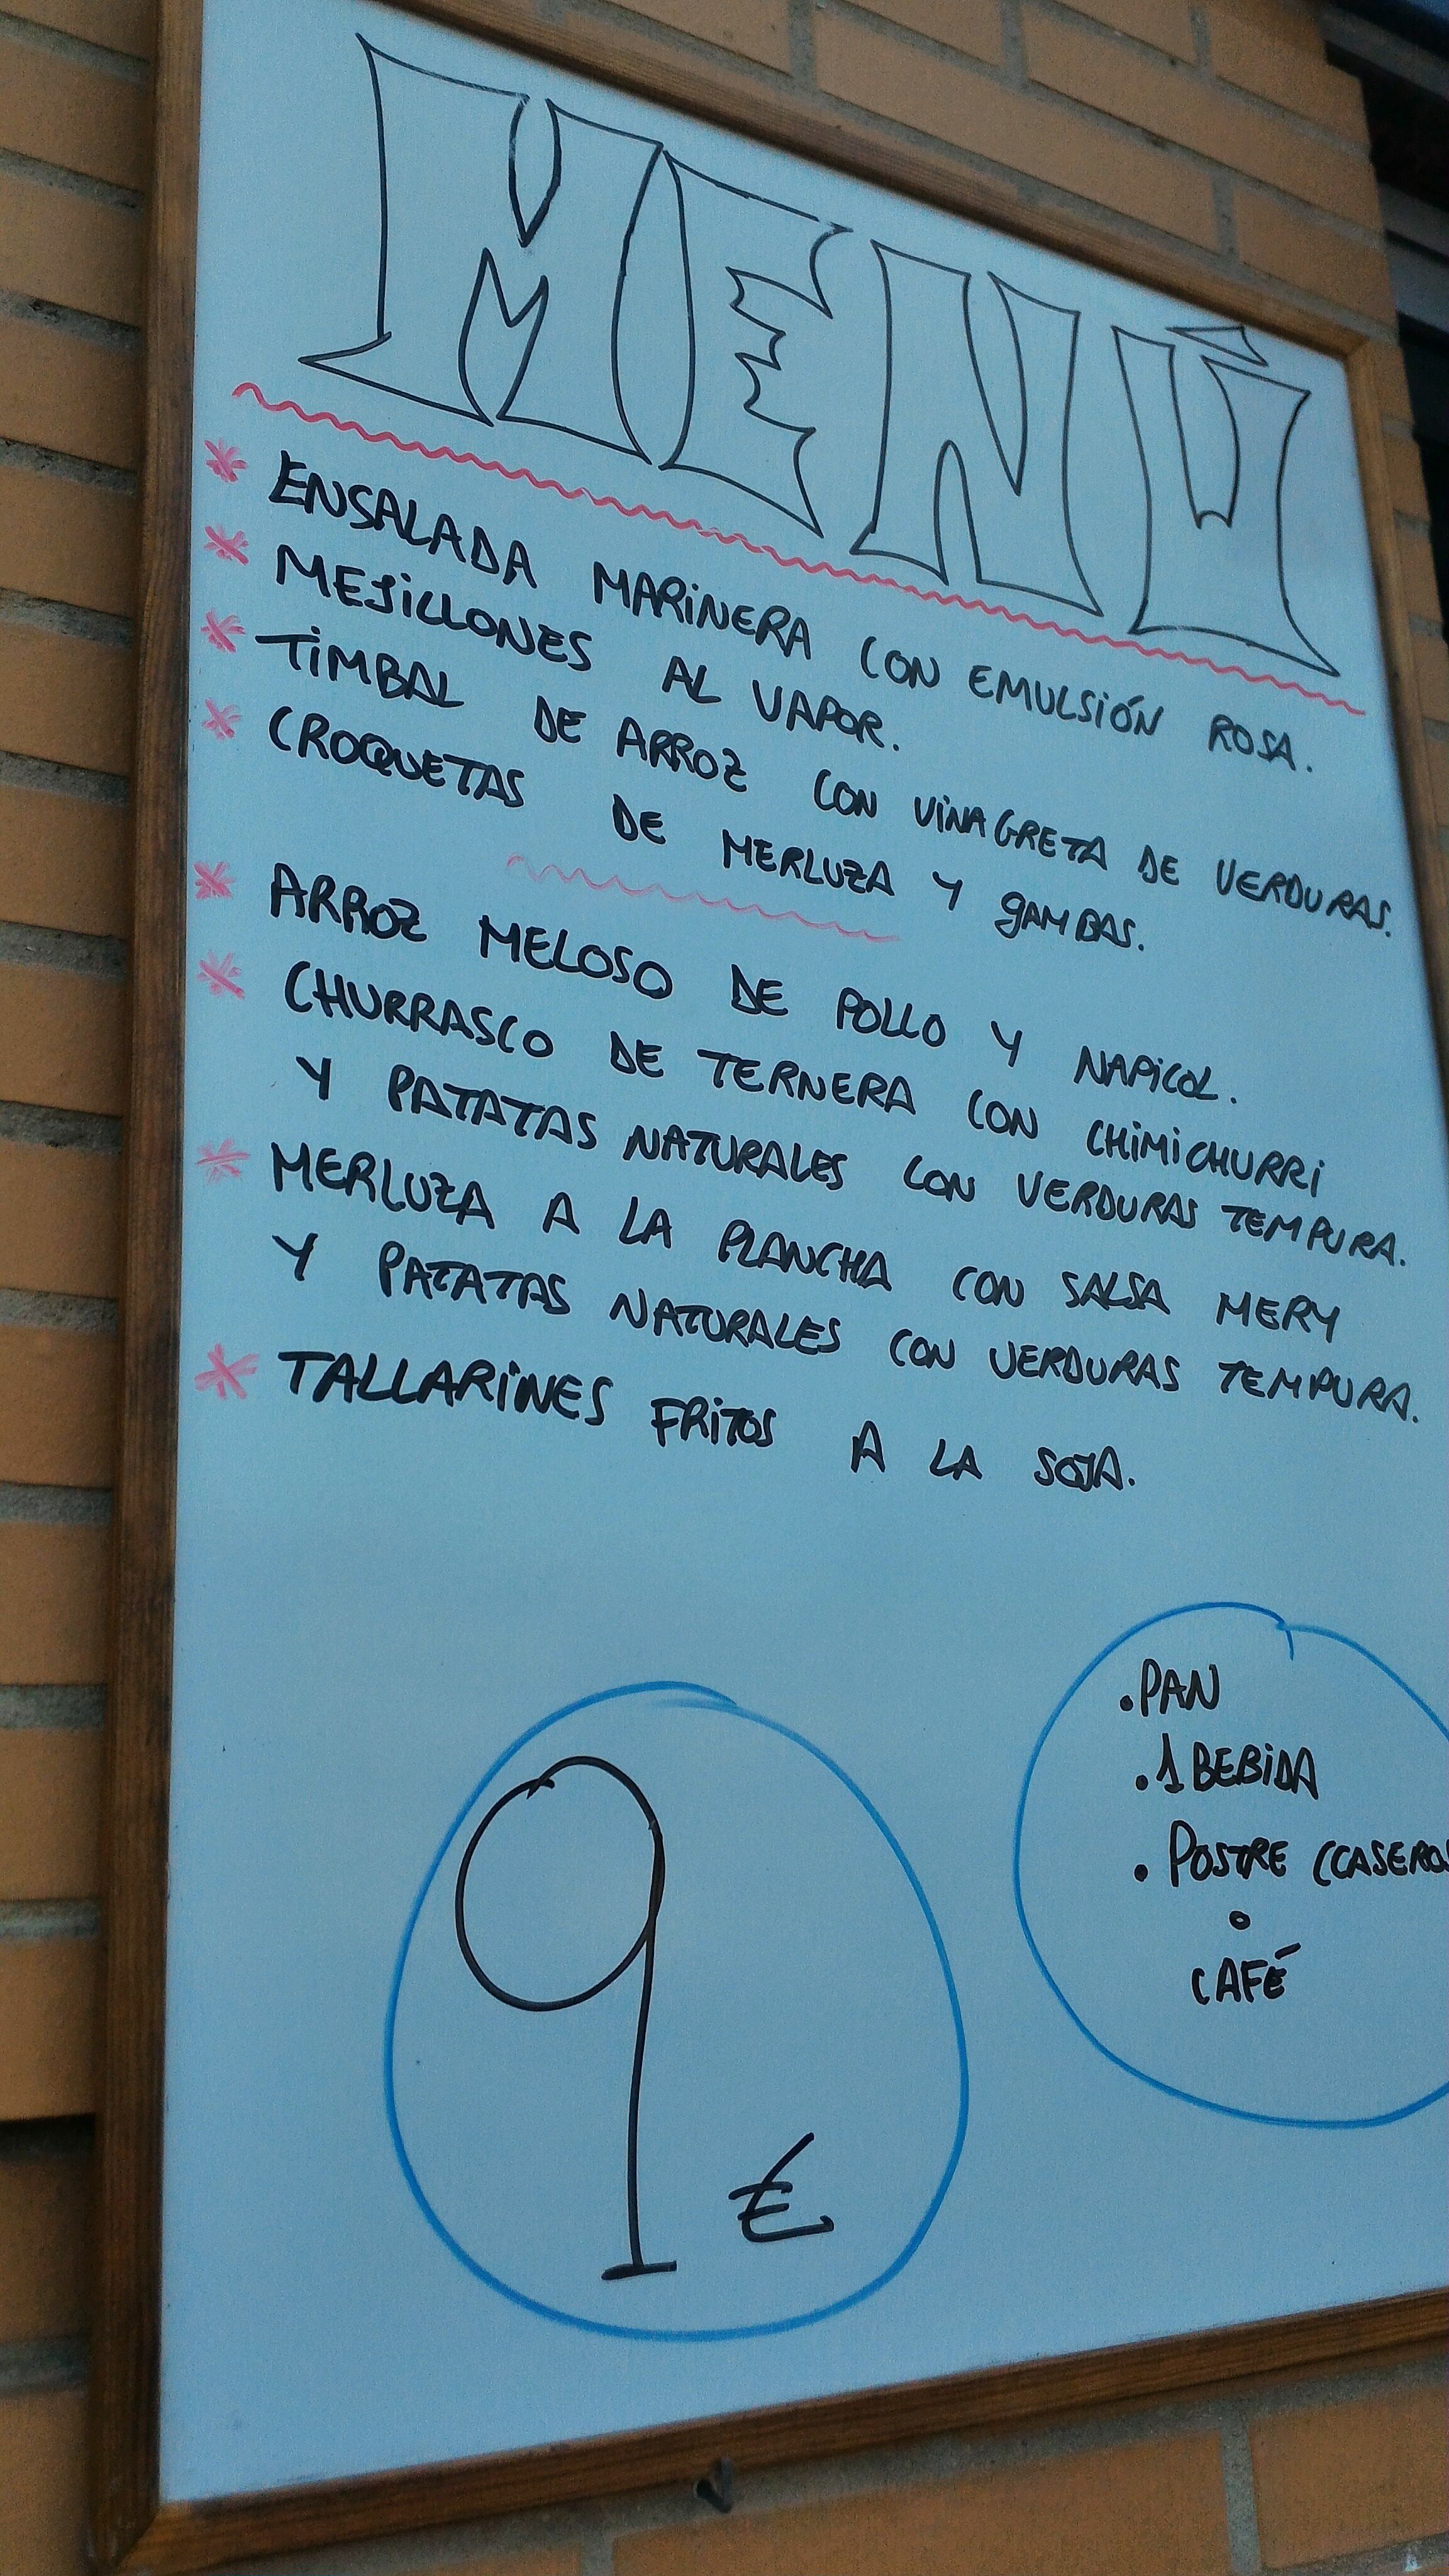 MENÚ
* ENSALADA MARINERA CON EMULSIÓN ROSA.
* MEJILLONES AL VAPOR.
* TIMBAL DE ARROZ CON VINAGRETA DE VERDURAS.
* CROQUETAS DE MERLUZA Y GAMBAS.
* ARROZ MELOSO DE POLLO Y NAPICOL.
* CHURRASCO DE TERNERA CON CHIMICHURRI
Y PATATAS NATURALES CON VERDURAS TEMPURA.
* MERLUZA A LA PLANCHA CON SALSA MERY
Y PATATAS NATURALES CON VERDURAS TEMPURA.
* TALLARINES FRITOS A LA SOJA.
. PAN
. 1 BEBIDA
. POSTRE (CASEROS
o
CAFÉ
9 €